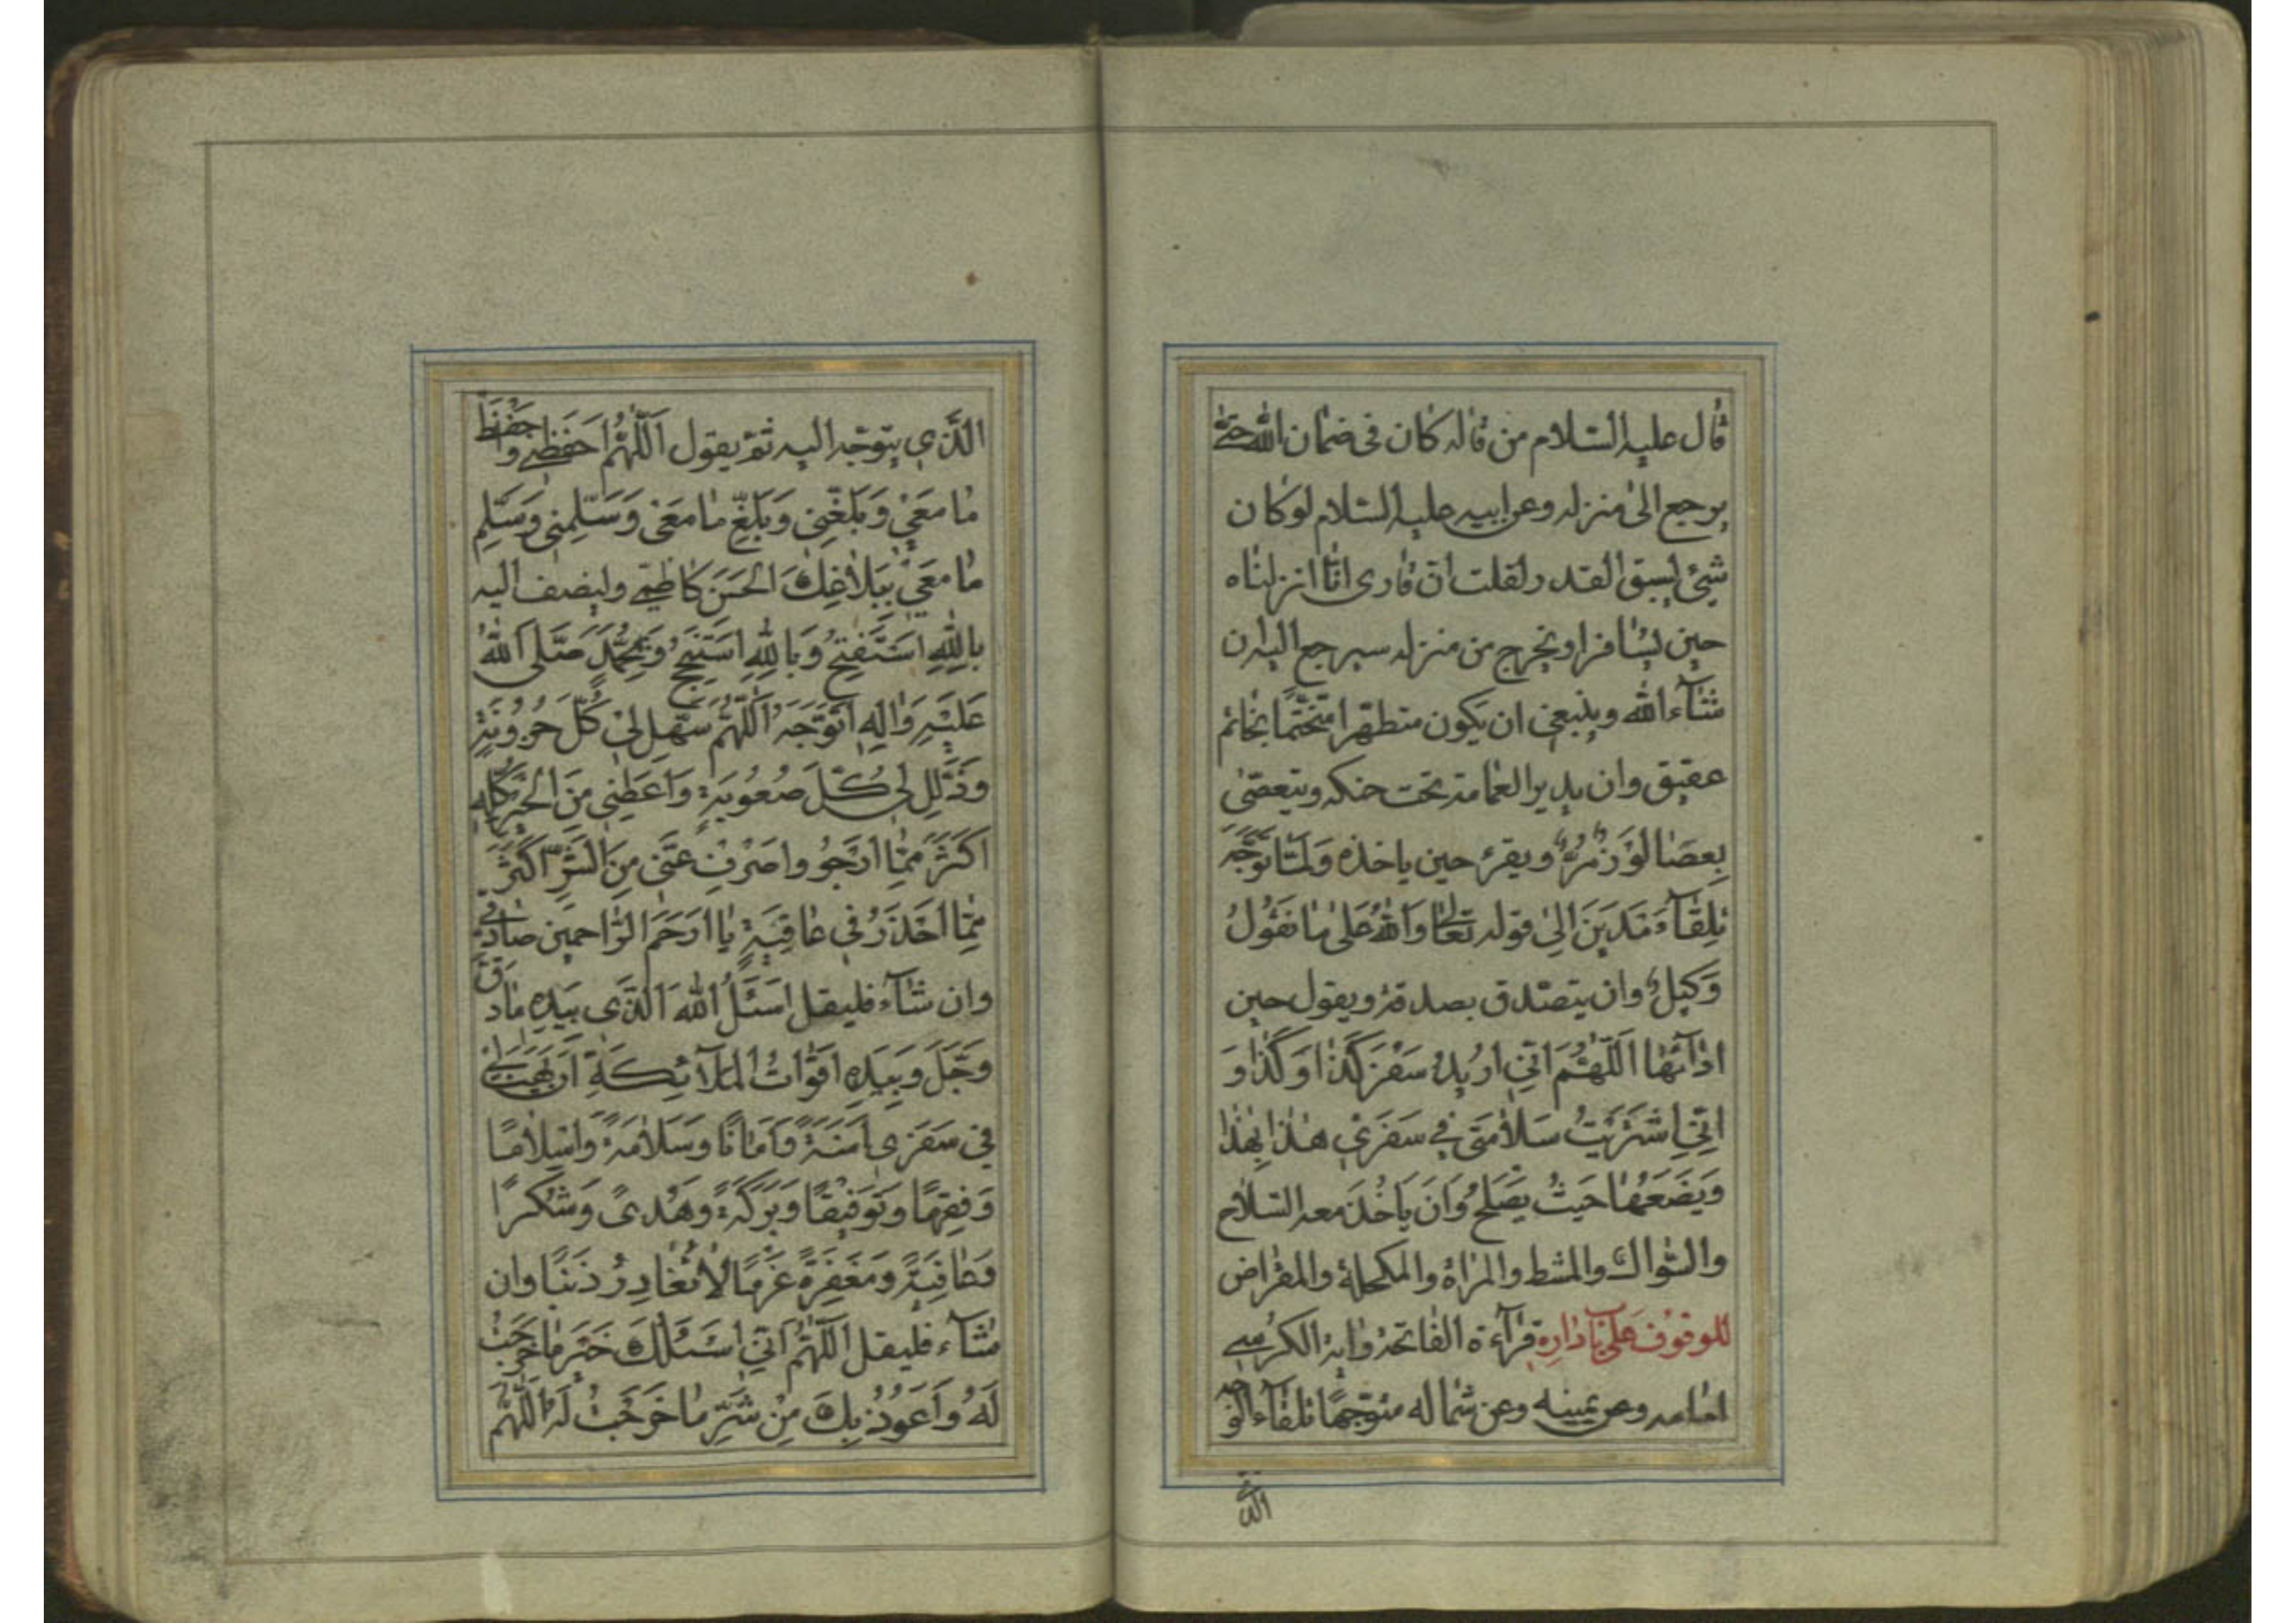 قال عليه السلام من قاله كان فى ضمان الله حتى
يرجع الى منزله وعن ابيه عليه السلام لو كان
شيئ يسبق القدر لقلت ان قارى انا انزلناه
حين يسافر او يخرج من منزله سيرجع اليه ان
شآء الله وينبغى ان يكون متطهرا متختما بخاتم
عقيق وان يدير العمامة تحت حنكه ويتعصى
بعصا لوز مر ويقرء حين ياخذه وَلَمّا تَوَجَّهَ
تِلقآءَ مَديَنَ الى قوله تعالى وَاللهُ عَلى ما نَقُولُ
وَكيلٌ وان يتصدق بصدقة ويقول حين
اذآئها اَللّهُمَّ اِنّى اُريدُ سَفَرَ كَذا وَكَذا وَ
اِنّى اشتَرَيتُ سَلامَتى فى سَفَرى هذا بِهذا
وَيَضَعُها حَيثُ يَصلَحُ وَاَن يَاخُذَ معه السلاح
والسواك والمشط والمرأة والمكحلة والمقراض
للوقوف على باب داره قرآءة الفاتحة واية الكرسى
امامه وعن يمينه وعن شماله متوجها تلقآء الوجه
الذى
الَّذى يتوجه اليه ثم يقول اَللّهُمَّ احفَظنى وَاحفَظ
ما مَعِىَ وَبَلِّغنى وَبَلِّغ ما مَعى وَسَلِّمنى وَسَلِّم
ما مَعى بِبَلاغِكَ الحَسَنِ كاظمى وليضف اليه
بِاللهِ اَستَفتِحُ وَبِاللهِ اَستَنجِحُ وَبِمُحَمَّدٍ صَلَّى اللهُ
عَلَيهِ وَالِهِ اَتَوَجَّهُ اَللّهُمَّ سَهِّل لى كُلَّ حُزُونَةٍ
وَذَلِّل لى كُلَّ صُعُوبَةٍ وَاَعطِنى مِنَ الخَيرِ كُلِّهِ
اَكثَرَ مِمّا اَرجُو وَاصرِف عَنّى مِنَ الشَّرِّ اَكثَرَ
مِمّا اَحذَرُ فى عافِيَةٍ يا اَرحَمَ الرّاحمين صادقى
وان شآء فليقل اَسئَلُ اللهَ الَّذى بِيَدِهِ ما دَقَّ
وَجَلَّ وَبِيَدِهِ اَقواتُ المَلآئِكَةِ اَن يَهَبَ لى
فى سَفَرى اَمنَةً وَاَمانًا وَسَلامَةً وَاِسلامًا
وَفِقهًا وَتَوفيقًا وَبَرَكَةً وَهُدىً وَشُكرًا
وَعافِيَةً وَمَغفِرَةً عَزمًا لا تُغادِرُ ذَنبًا وان
شآء فليقل اَللّهُمَّ اِنّى اَسئَلُكَ خَيرَ ما خَرَجتُ
لَهُ وَاَعُوذُ بِكَ مِن شَرِّ ما خَرَجتُ لَهُ اَللّهُمَّ